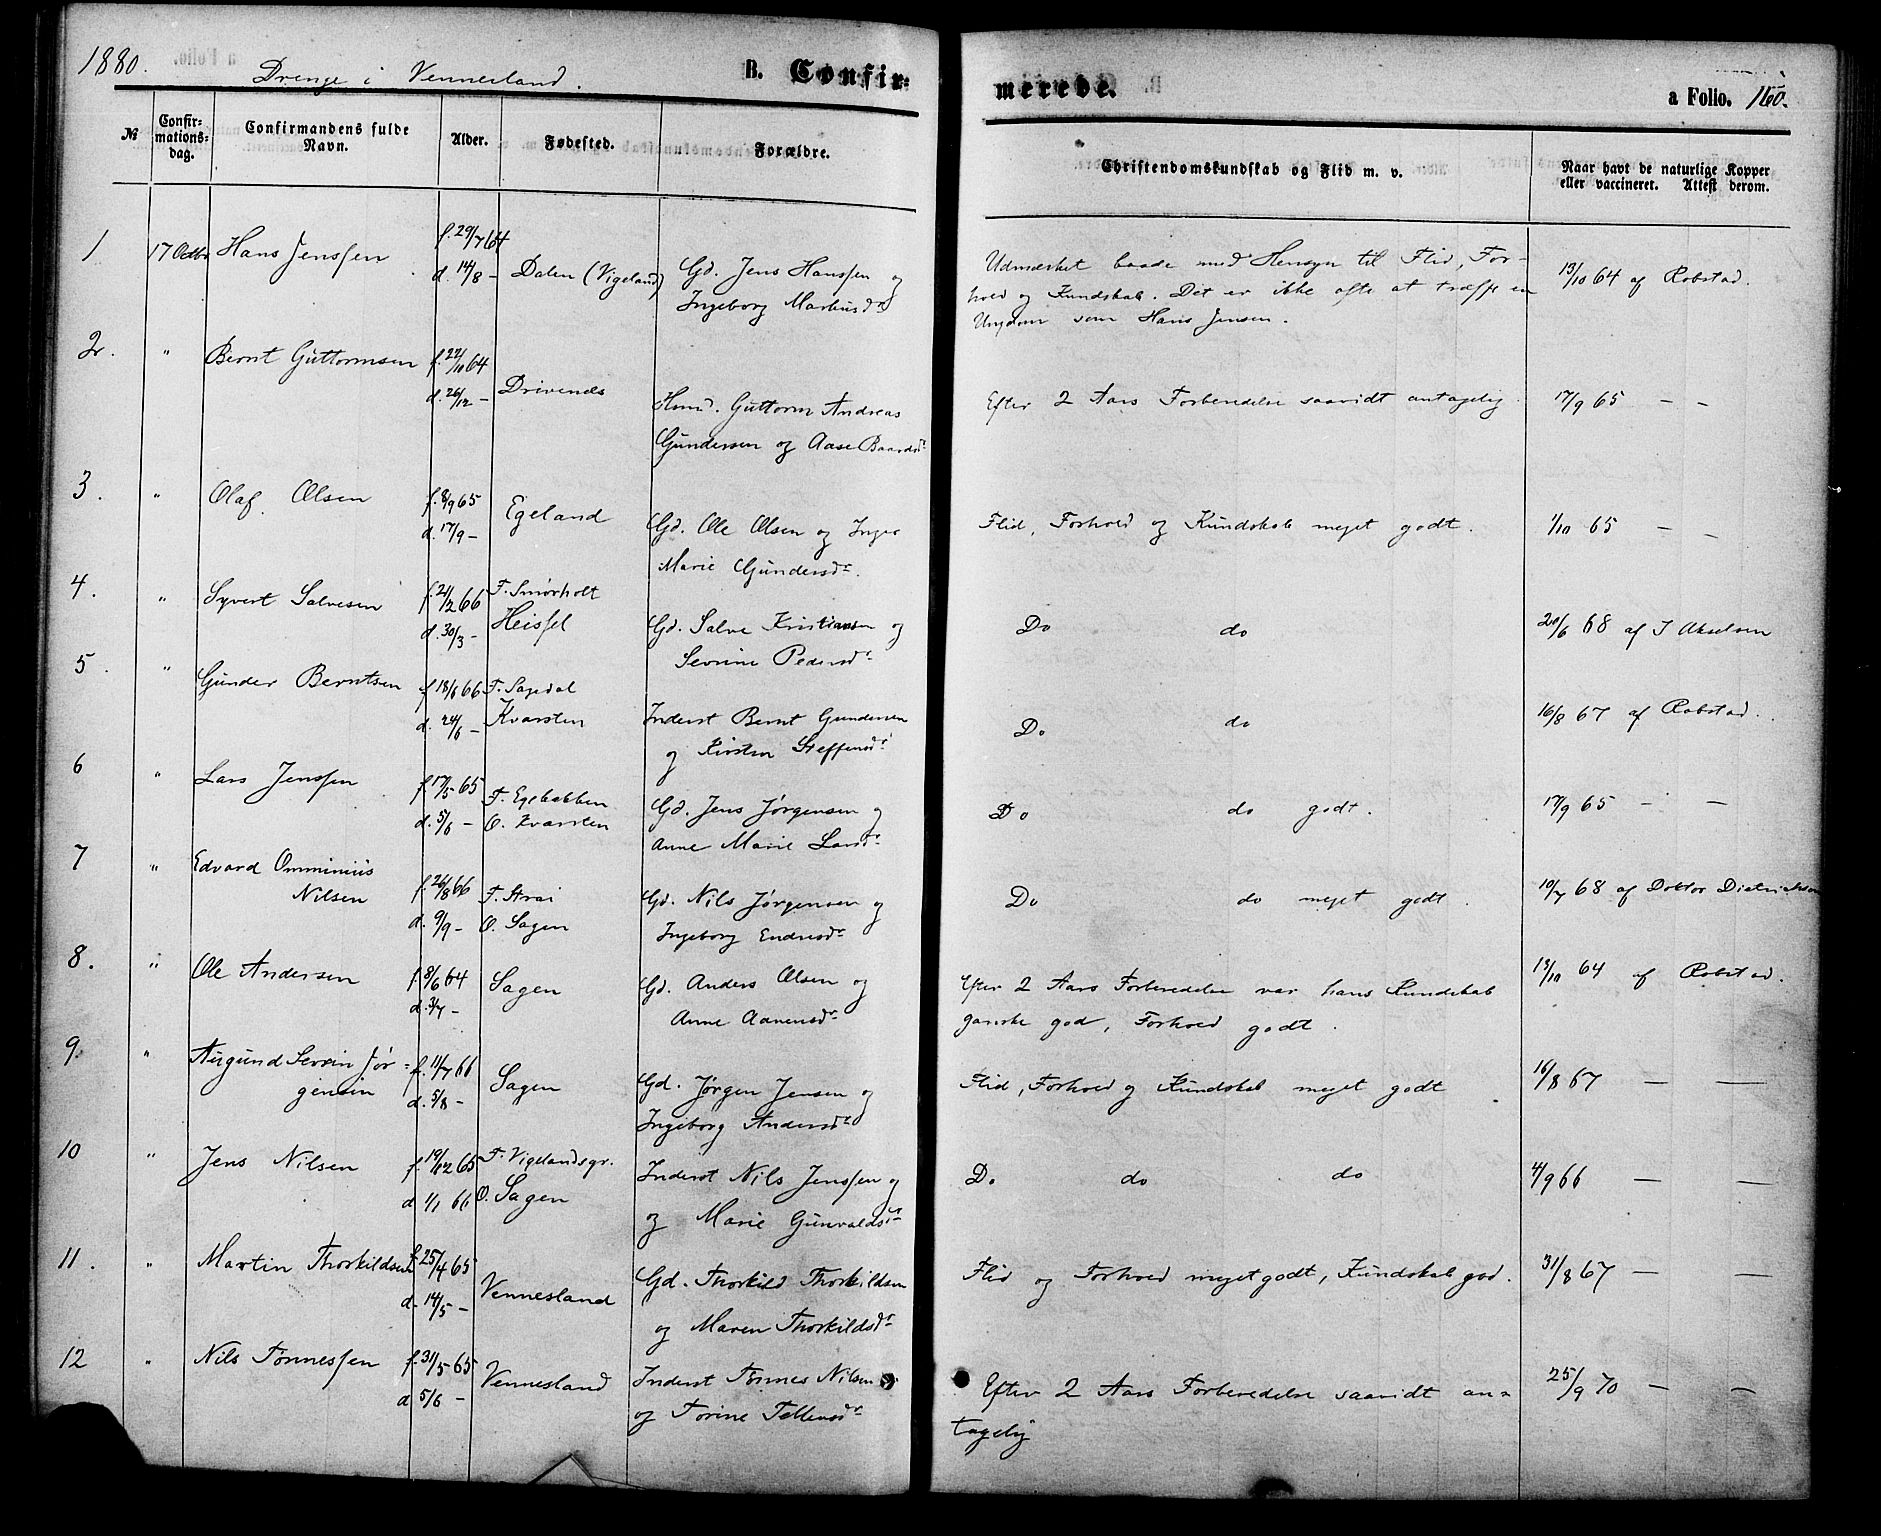 1880. Drenge i Vennesland. B. Confir- merede. a Folio. 160.
№ Confir- mations- dag. Confirmandens fulde Navn. Alder. Fødested. Forældre. Christendomskundskab og Flid m. v. Naar havt de naturlige Kopper eller vaccineret. Attest derom.
1 17 Octbr Hans Jenssen f. 29/7 64 d. 14/8 - Dalen (Vigeland) Gd. Jens Hanssen og
Ingeborg Markusdr
Udmærket baade med Hensyn til Flid, For-
hold og Kundskab. Det er ikke ofte at træffe en
Ungdom som Hans Jensen.
13/10 64 af Robstad.
2. " Bernt Guttormsen f. 22/10 64 d. 26/12 - Drivenes Hmd. Guttorm Andreas
Gundersen og Aase Baardsdr
Efter 2 Aars Forberedelse saavidt antagelig. 17/9 65 — —
3. " Olaf Olsen f. 8/9 65 d. 17/9 - Egeland Gd. Ole Olsen og Inger
Marie Gundersdr.
Flid, Forhold og Kundskab meget godt. 1/10 65 — —
4. " Syvert Salvesen f. 21/2 66 d. 30/3 - F. Smørholt
Heissel Gd. Salve Kristiansen og
Sevrine Pedersdr
Do do 20/6 68 af I Akselsen
5. " Gunder Berntsen f. 18/6 66 d. 24/6 - F. Sagedal
Kvarsten Inderst Bernt Gundersen
og Kirsten Steffensdr
Do do 16/8 67 af Robstad.
6 " Lars Jenssen f. 17/5 65 d. 5/6 - F. Egebakken
O. Kvarsten Gd. Jens Jørgensen og
Anne Marie Larsdr
Do do godt. 17/9 65 — —
7 " Edvard Omminius
Nilsen f. 26/8 66 d. 9/9 - F. Strai
O. Sagen Gd. Nils Jørgensen og
Ingeborg Endresdr
Do do meget godt. 10/7 68 af Doktor Dietrichson
8. " Ole Andersen f. 8/6 64 d. 3/7 - Sagen Gd. Anders Olsen og
Anne Aanensdr
Efter 2 Aars Forberedelse var hans Kundskab
ganske god, Forhold godt.
13/10 64 af Robstad.
9. " Augund Sevrin Jør-
gensen f. 11/7 66 d. 5/8 - Sagen Gd. Jørgen Jensen og
Ingeborg Andersdr
Flid, Forhold og Kundskab meget godt 16/8 67 — —
10 " Jens Nilsen f. 19/12 65 d 1/1 66 F. Vigelandsgr.
O. Sagen Inderst Nils Jenssen og
og Marie Gunvaldsdr
Do do do 4/9 66 — —
11. " Martin Thorkildsen f. 25/4 65 d. 14/5 - Vennesland Gd. Thorkild Thorkildsen
og Maren Thorkildsdr
Flid og Forhold meget godt, Kundskab god. 31/8 67 — —
12 " Nils Tønnessen f. 31/5 65 d 5/6 - Vennesland Inderst Tønnes Nilsen
og Torine Tellefsdr
Efter 2 Aars Forberedelse saavidt an-
tagelig
25/9 70 — —